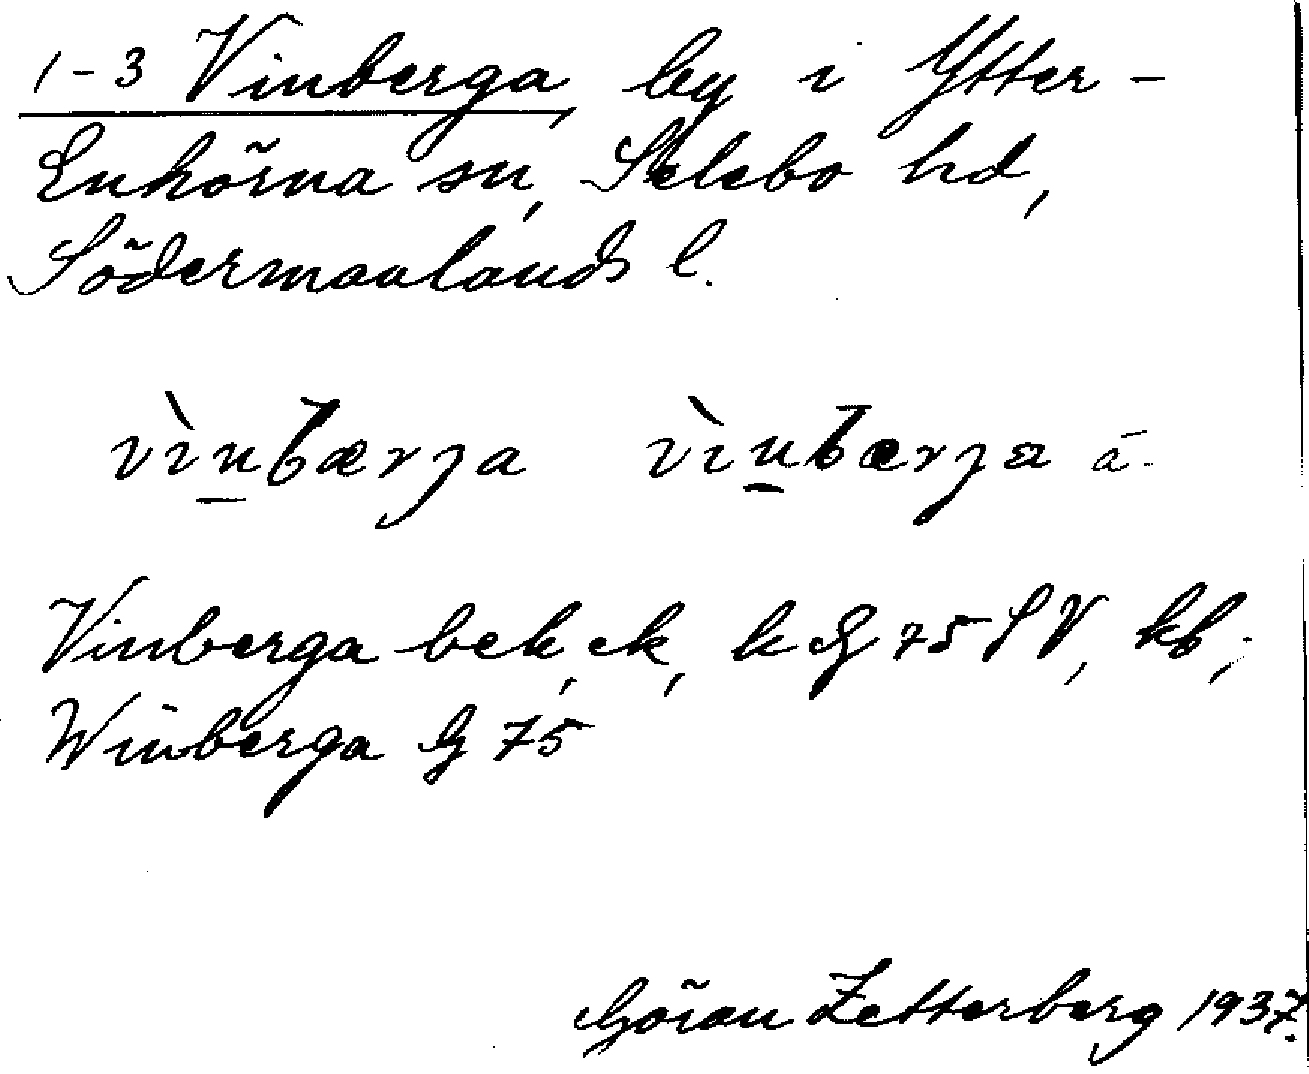 1-3 Vinberga, by i Ytter-
Enhörna sn, Selebo hd,
Södermanlands l.
vìnbærja vìnbærja ā-
Vinberga bek, ek, k G 75 SV, kb;
Winberga G 75
Göran Zetterberg 1937.